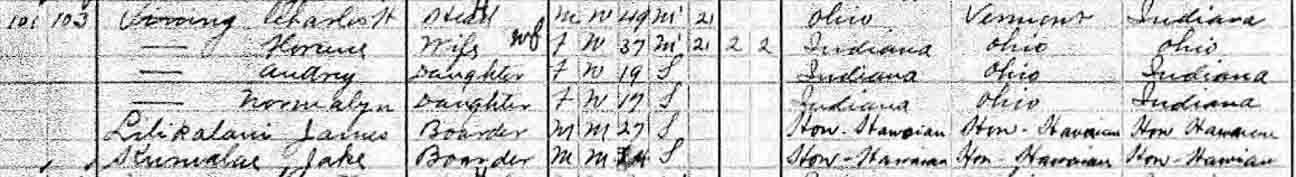 101 103 Charles H Head M W 49 M1 21 Ohio Vermont Indiana
— Florence Wife F W 37 M1 21 2 2 Indiana Ohio Ohio
— Audrey Daughter F W 19 S Indiana Ohio Indiana
— Normalyn Daughter F W 17 S Indiana Ohio Indiana
Lilikalani James Boarder M M 27 S How-Hawaiian How-Hawaiian How Hawaiian
Jake Boarder M M S How-Hawaiian How-Hawaiian How-Hawaiian